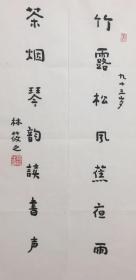 九十三岁
竹露松风蕉夜雨
茶烟琴韵讀书声
林筱之